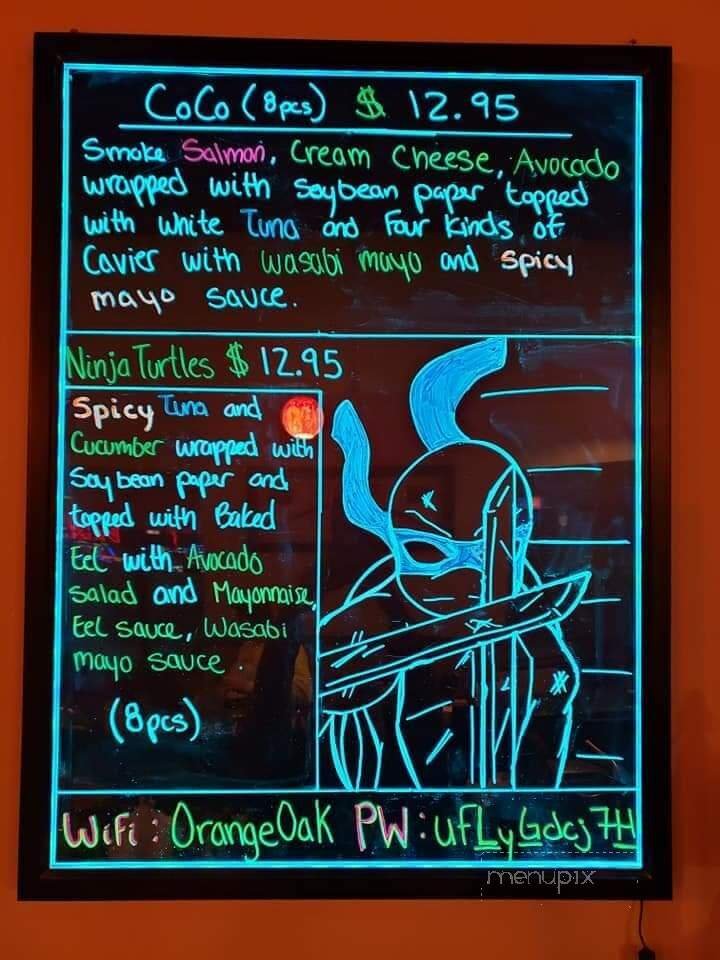 CoCo (8pcs) $ 12.95
Smoke Salmon, Cream Cheese, Avocado
wrapped with Soybean paper topped
with white Tuna and Four Kinds of
Cavier with wasabi mayo and Spicy
mayo sauce.
Ninja Turtles $ 12.95
Spicy Tuna and
Cucumber wrapped with
Soybean paper and
topped with Baked
Eel with Avocado
salad and Mayonnaise,
Eel sauce, Wasabi
mayo sauce.
(8pcs)
WiFi: OrangeOak PW: ufLyGdcj7H
menupix